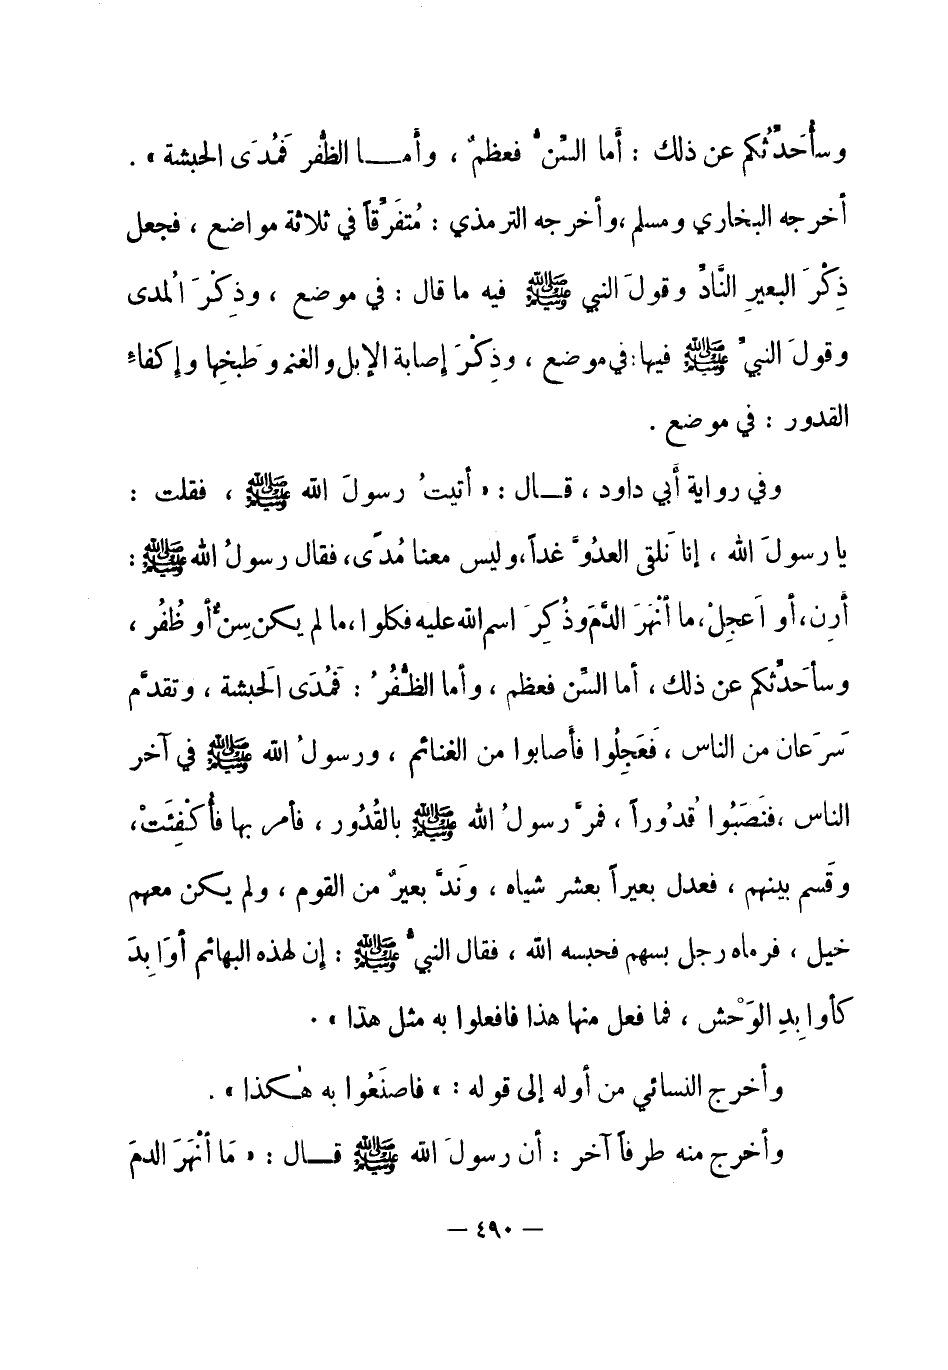 وسأُحَدِّثُكم عن ذلك : أَما السِّنُّ فعظمٌ ، وأَمــا الظُّفر فَمُدَى الحبشة » .
أخرجه البخاري ومسلم ،وأخرجه الترمذي : مُتفَرِّقاً في ثلاثة مواضع ، فجعل
ذِكْرَ البعيرِ النَّادِّ وقولَ النبي ﷺ فيه ما قال : في موضع ، وذِكْرَ المُدى
وقولَ النبيِّ ﷺ فيها: في موضع ، وذِكْرَ إصابة الإبل والغنم وَطبخِها وإكفاءِ
القدور : في موضع .
وفي رواية أَبي داود ، قــال : « أتيتُ رسولَ الله ﷺ ، فقلت :
يا رسولَ الله ، إنا نَلقى العدُوَّ غداً ،وليس معنا مُدًى، فقال رسولُ الله ﷺ :
أَرِن، أو اَعجِلْ، ما أَنْهَرَ الدَّمَ وذُكِرَ اسم الله عليه فكلوا ،ما لم يكن سِنٌّ أو ظُفُر ،
وسأحَدِّثكم عن ذلك ، أما السِّن فعظم ، وأما الظُّفُرُ : فَمُدَى الحَبشة ، وتقدَّم
سَرَعان من الناس ، فَعَجِلُوا فأَصابوا من الغنائم ، ورسولُ الله ﷺ في آخر
الناس ،فنَصَبُوا قُدُوراً ، فمرَّ رسولُ الله ﷺ بالقُدُور ، فأمر بها فأُكْفِئَتْ،
وقَسم بينهم ، فعدل بعيراً بعشر شياه ، ونَدَّ بعيرٌ من القوم ، ولم يكن معهم
خيل ، فرماه رجل بسهم فحبسه الله ، فقال النبيُّ ﷺ : إن لهذه البهائم أَوَابِدَ
كأوابِدِ الوَحْش ، فما فعل منها هذا فافعلوا به مثل هذا » .
وأخرج النسائي من أوله إلى قوله : » فاصنَعُوا به هٰـكذا » .
وأخرج منه طرفاً آخر : أن رسولَ الله ﷺ قــال : « مَا أَنْهَرَ الدمَ
— ٤٩٠ —